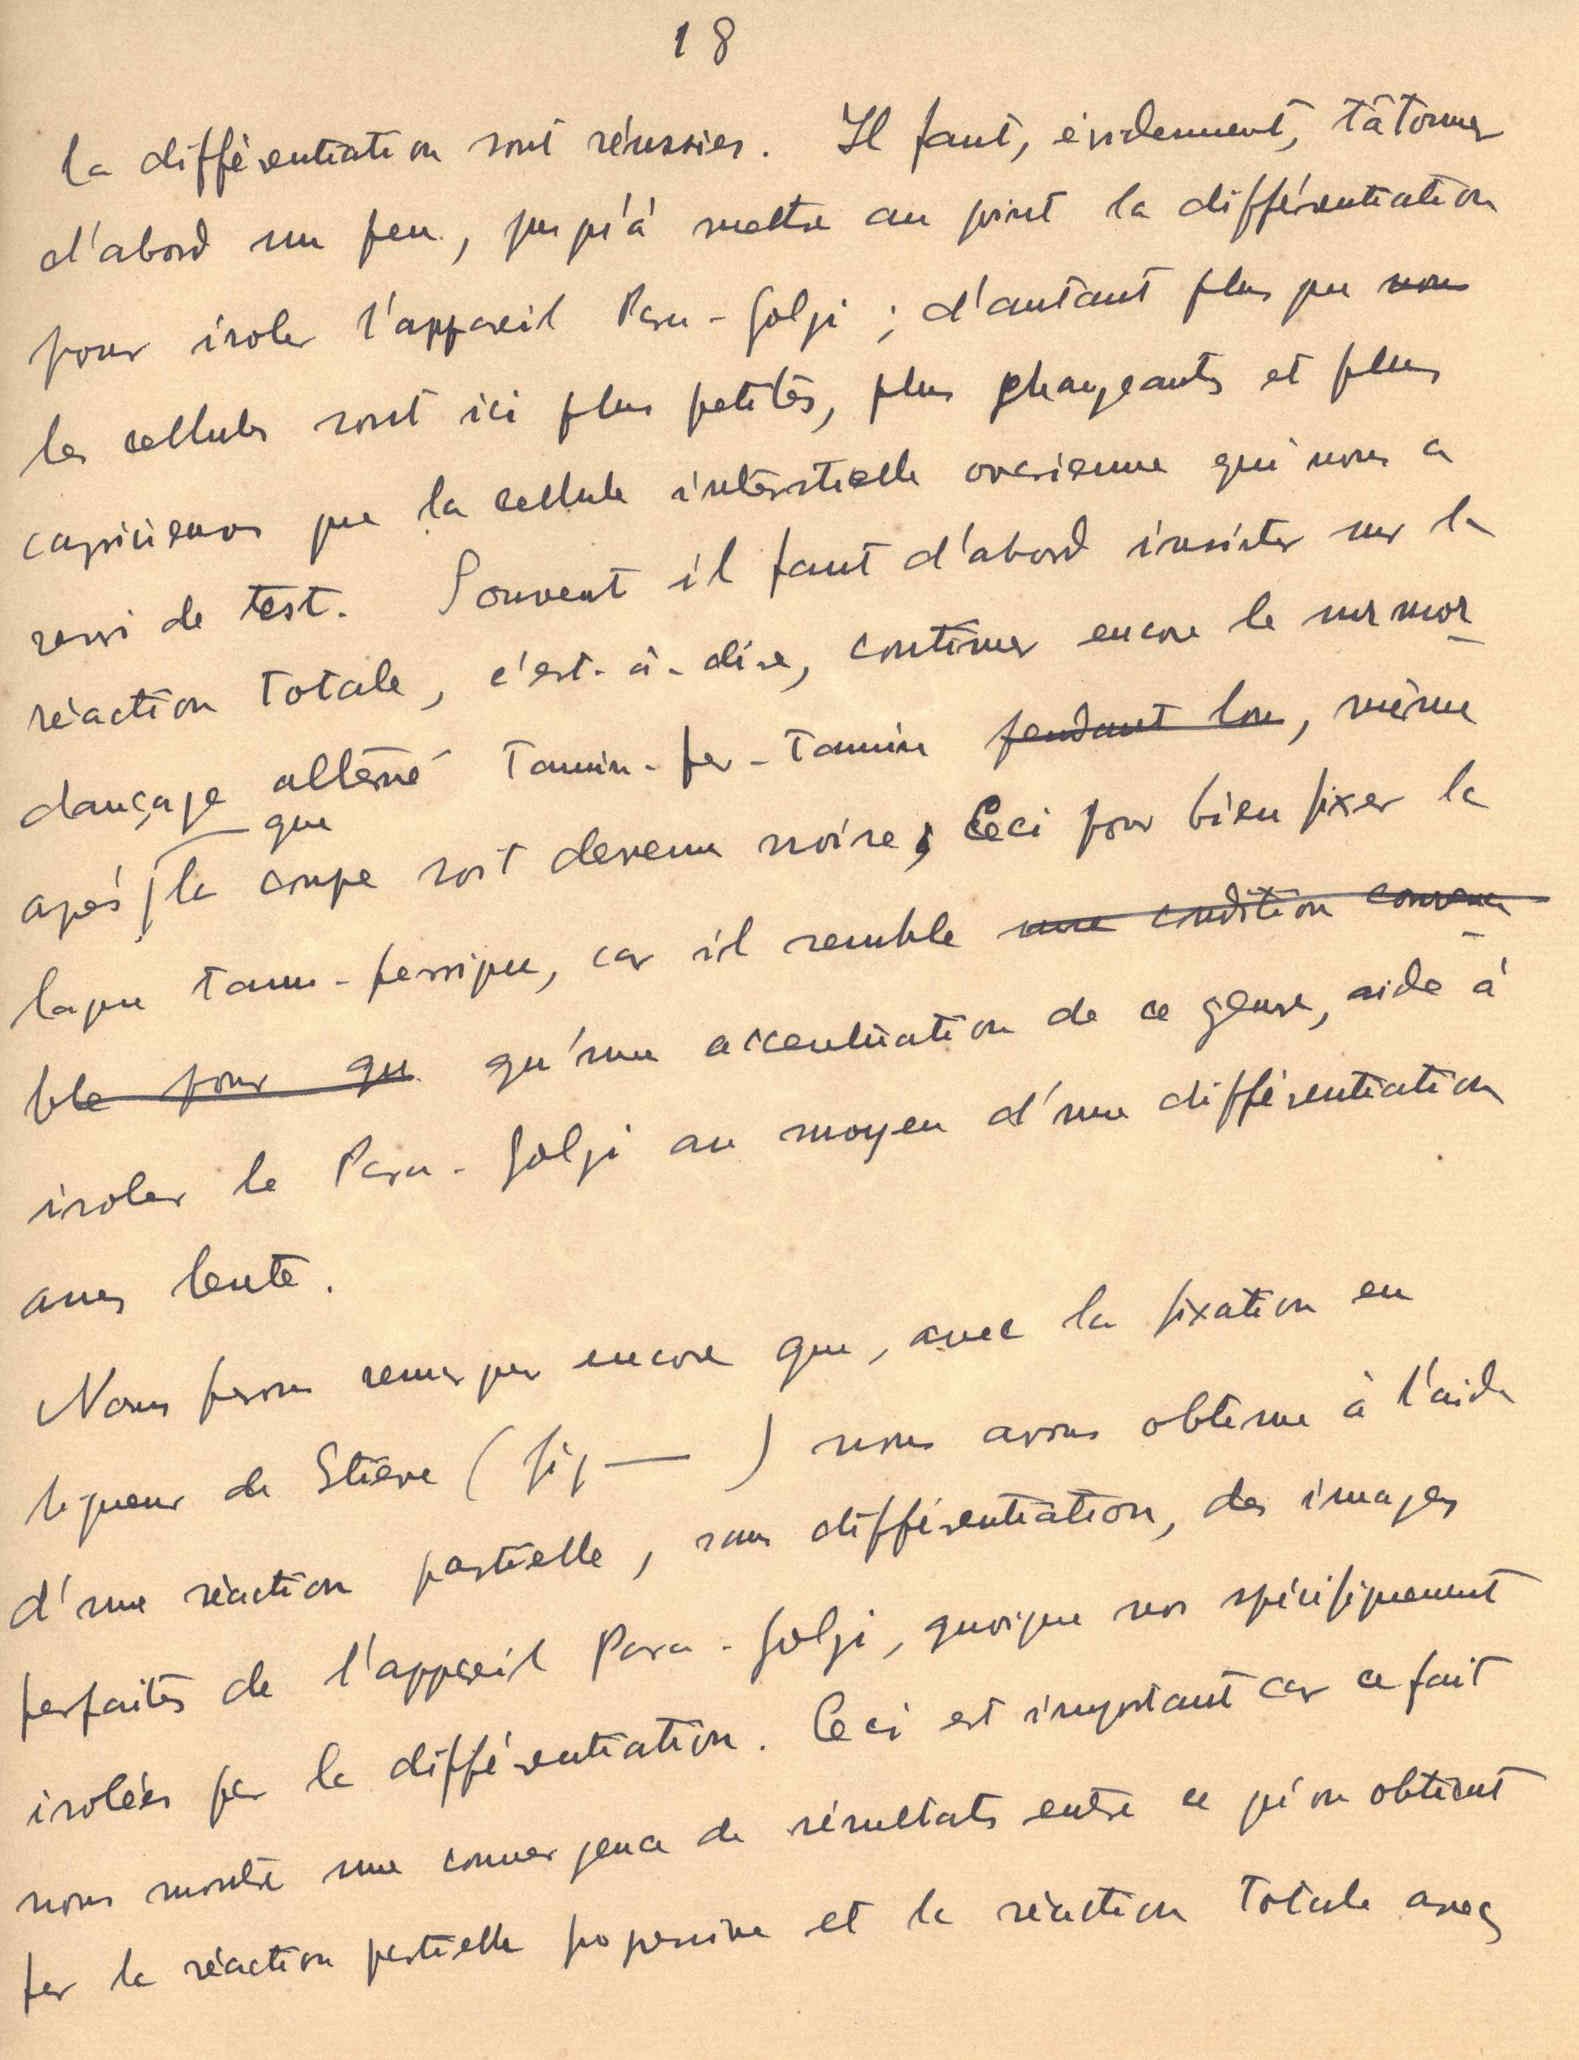 18
la différentiation sont réussies. Il faut, évidemment, tâtonner
d'abord un peu, jusqu'à mettre au point la différentiation
pour isoler l'appareil Para-Golgi ; d'autant plus que nous
les cellules sont ici plus petites, plus changeants et plus
capricieuses que la cellule interstitielle ovarienne qui nous a
servi de test. Souvent il faut d'abord insister sur la
réaction totale, c'est-à-dire, continuer encore le surmor-
dançage alterné tannin-fer-tannin pendant lon, même
après que la coupe soit devenue noire, Ceci pour bien fixer la
laque tanno-ferrique, car il semble une condition convena-
ble pour qu qu'une accentuation de ce genre, aide à
isoler le Para-Golgi au moyen d'une différentiation
assez lente.
Nous ferons remarquer encore que, avec la fixation en
liqueur de Stieve (fig — ) nous avons obtenue à l'aide
d'une réaction partielle, sans différentiation, des images
parfaites de l'appareil Para-Golgi, quoique non spécifiquement
isolées par la différentiation. Ceci est important car ce fait
nous montre une convergence de résultats entre ce qu'on obtient
par la réaction partielle progressive et la réaction totale avec